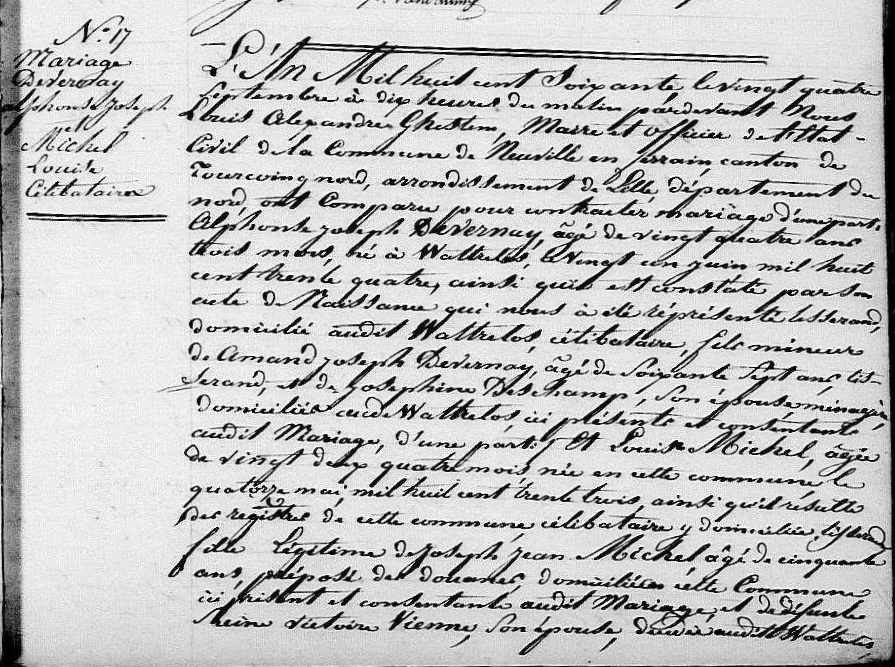 N.° 17
Mariage
Devernay
alphonse Joseph
et
Michel
Louise
Célibataires
L'An Mil huit cent Soixante le vingt quatre
Septembre à dix heures du matin pardevant Nous
Louis Alexandre Ghestem, Maire et officier de l'Etat-
Civil de la Commune de Neuville en ferrain, canton de
Tourcoing nord, arrondissement de Lille, département du
nord, ont Comparu pour contracter mariage d'une part,
Alphonse Joseph Devernay, âgé de vingt quatre ans
trois mois, né à Wattrelos, le vingt un juin mil huit
cent trente quatre, ainsi qu'il est constaté par son
acte de Naissance qui nous à été réprésenté tisserand,
domicilié audit Wattrelos, célibataire, fils mineur
de Amand joseph Devernay, âgé de Soixante Sept ans, tis-
serand, et de Josephine Deschamp, Son épouse ménagère,
domiciliés audit Wattrelos ici présents et consentants
audit Mariage, d'une part; Et Louise Michel, âgée
de vingt deux quatre mois née en cette commune le
quatorze mai mil huit cent trente trois, ainsi qu'il résulte
des registres de cette commune, célibataire y domiciliée, tisserande
fille Légitime de Joseph jean Michel âgé de cinquante
ans, préposé des douanes, domicilié en cette Commune
ici présent et consentant audit Mariage, et de défunte
Reine victoire Vienne, Son épouse, décédée audit Wattrelos,